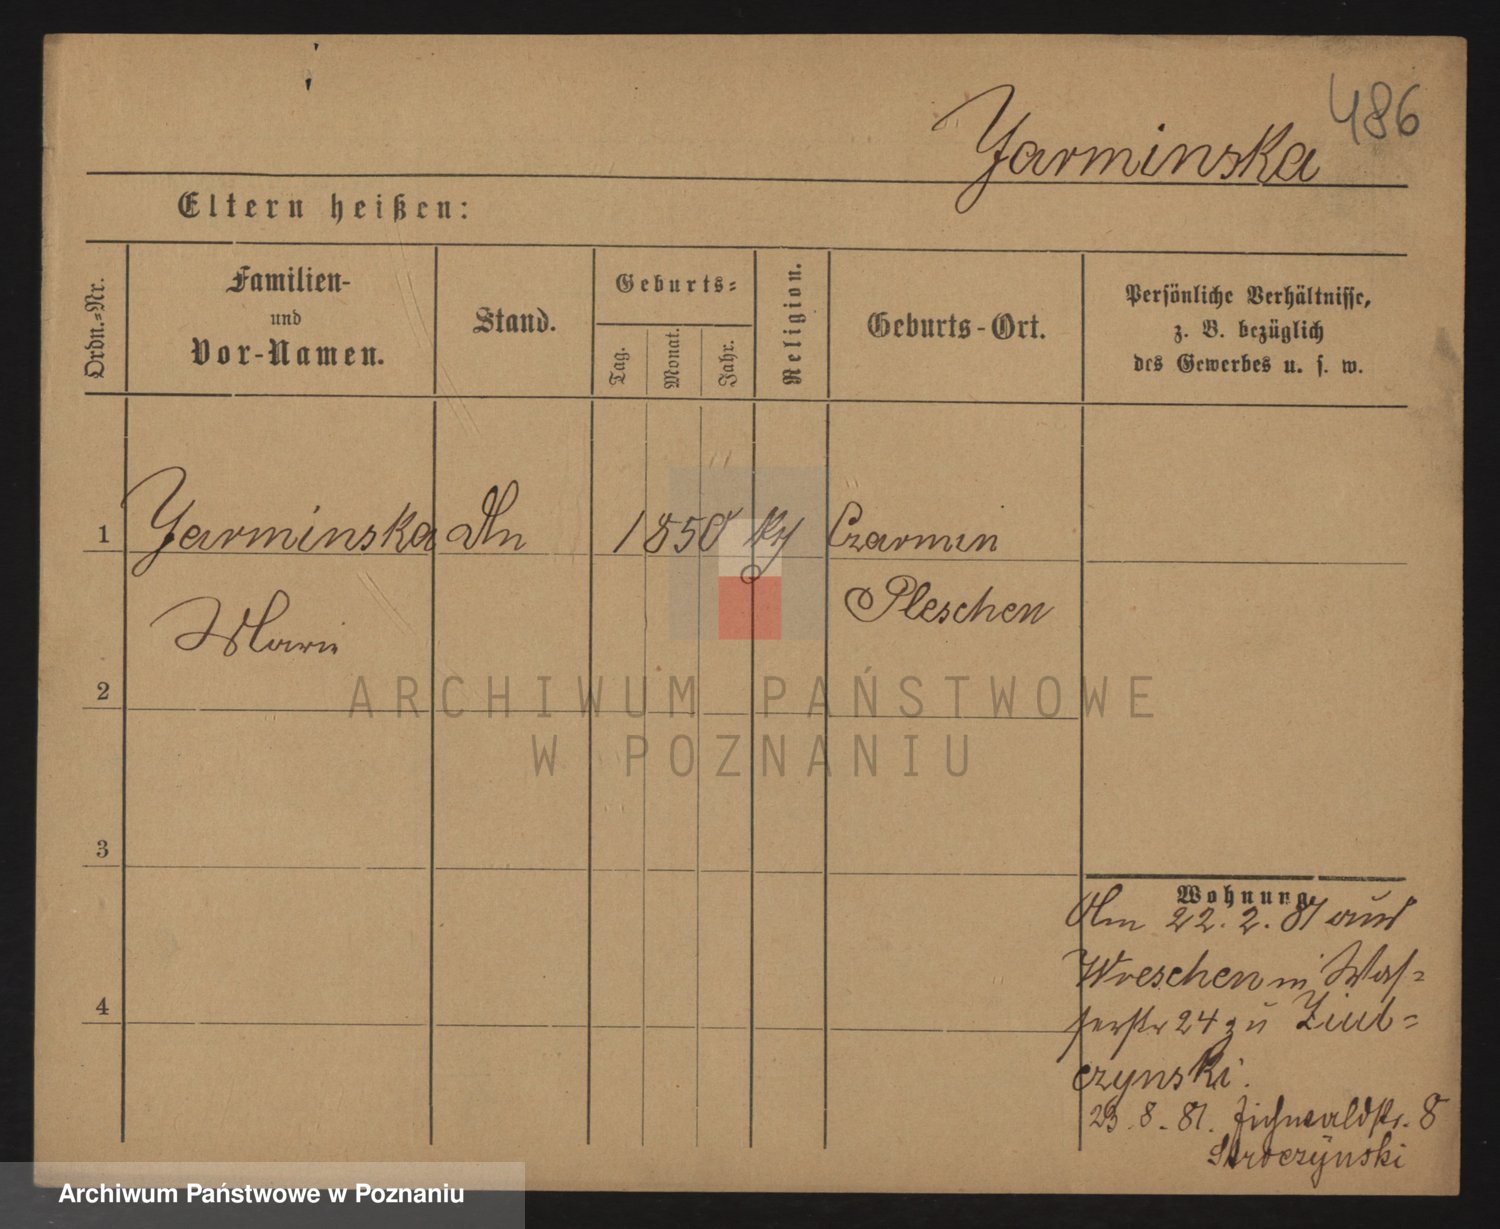 486
Jarminska
Eltern heißen:
Ordn.-Nr.
Familien-
und
Vor-Namen.
Stand.
Geburts-
Tag.
Monat.
Jahr.
Religion.
Geburts-Ort.
Persönliche Verhältnisse,
z. B. bezüglich
des Gewerbes u. s. w.
1 Jarminska 1850 Czarmin
Marie Pleschen
2
ARCHIWUM PAŃSTWOWE
W POZNANIU
3
Wohnung.
Am 22. 2. 81 aus
Wreschen n Was-
4
serstr 24 zu
czynski.
23. 8. 81. Fichwaldstr. 8
Skroczynski
Archiwum Państwowe w Poznaniu